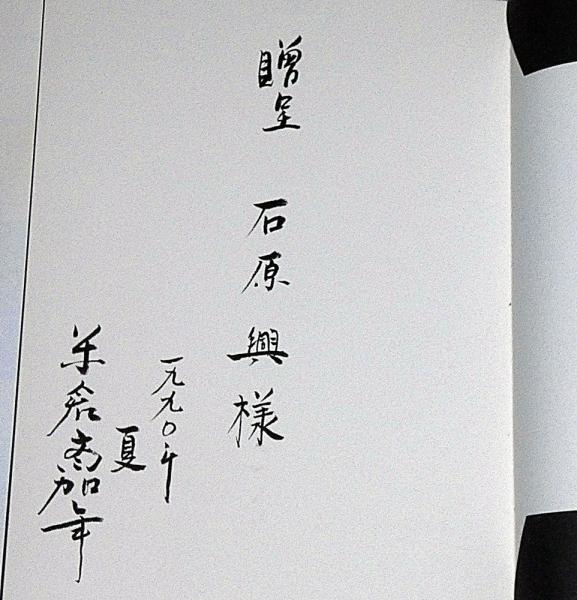 贈呈
石原興様
一九九〇年
夏
米倉斉加年